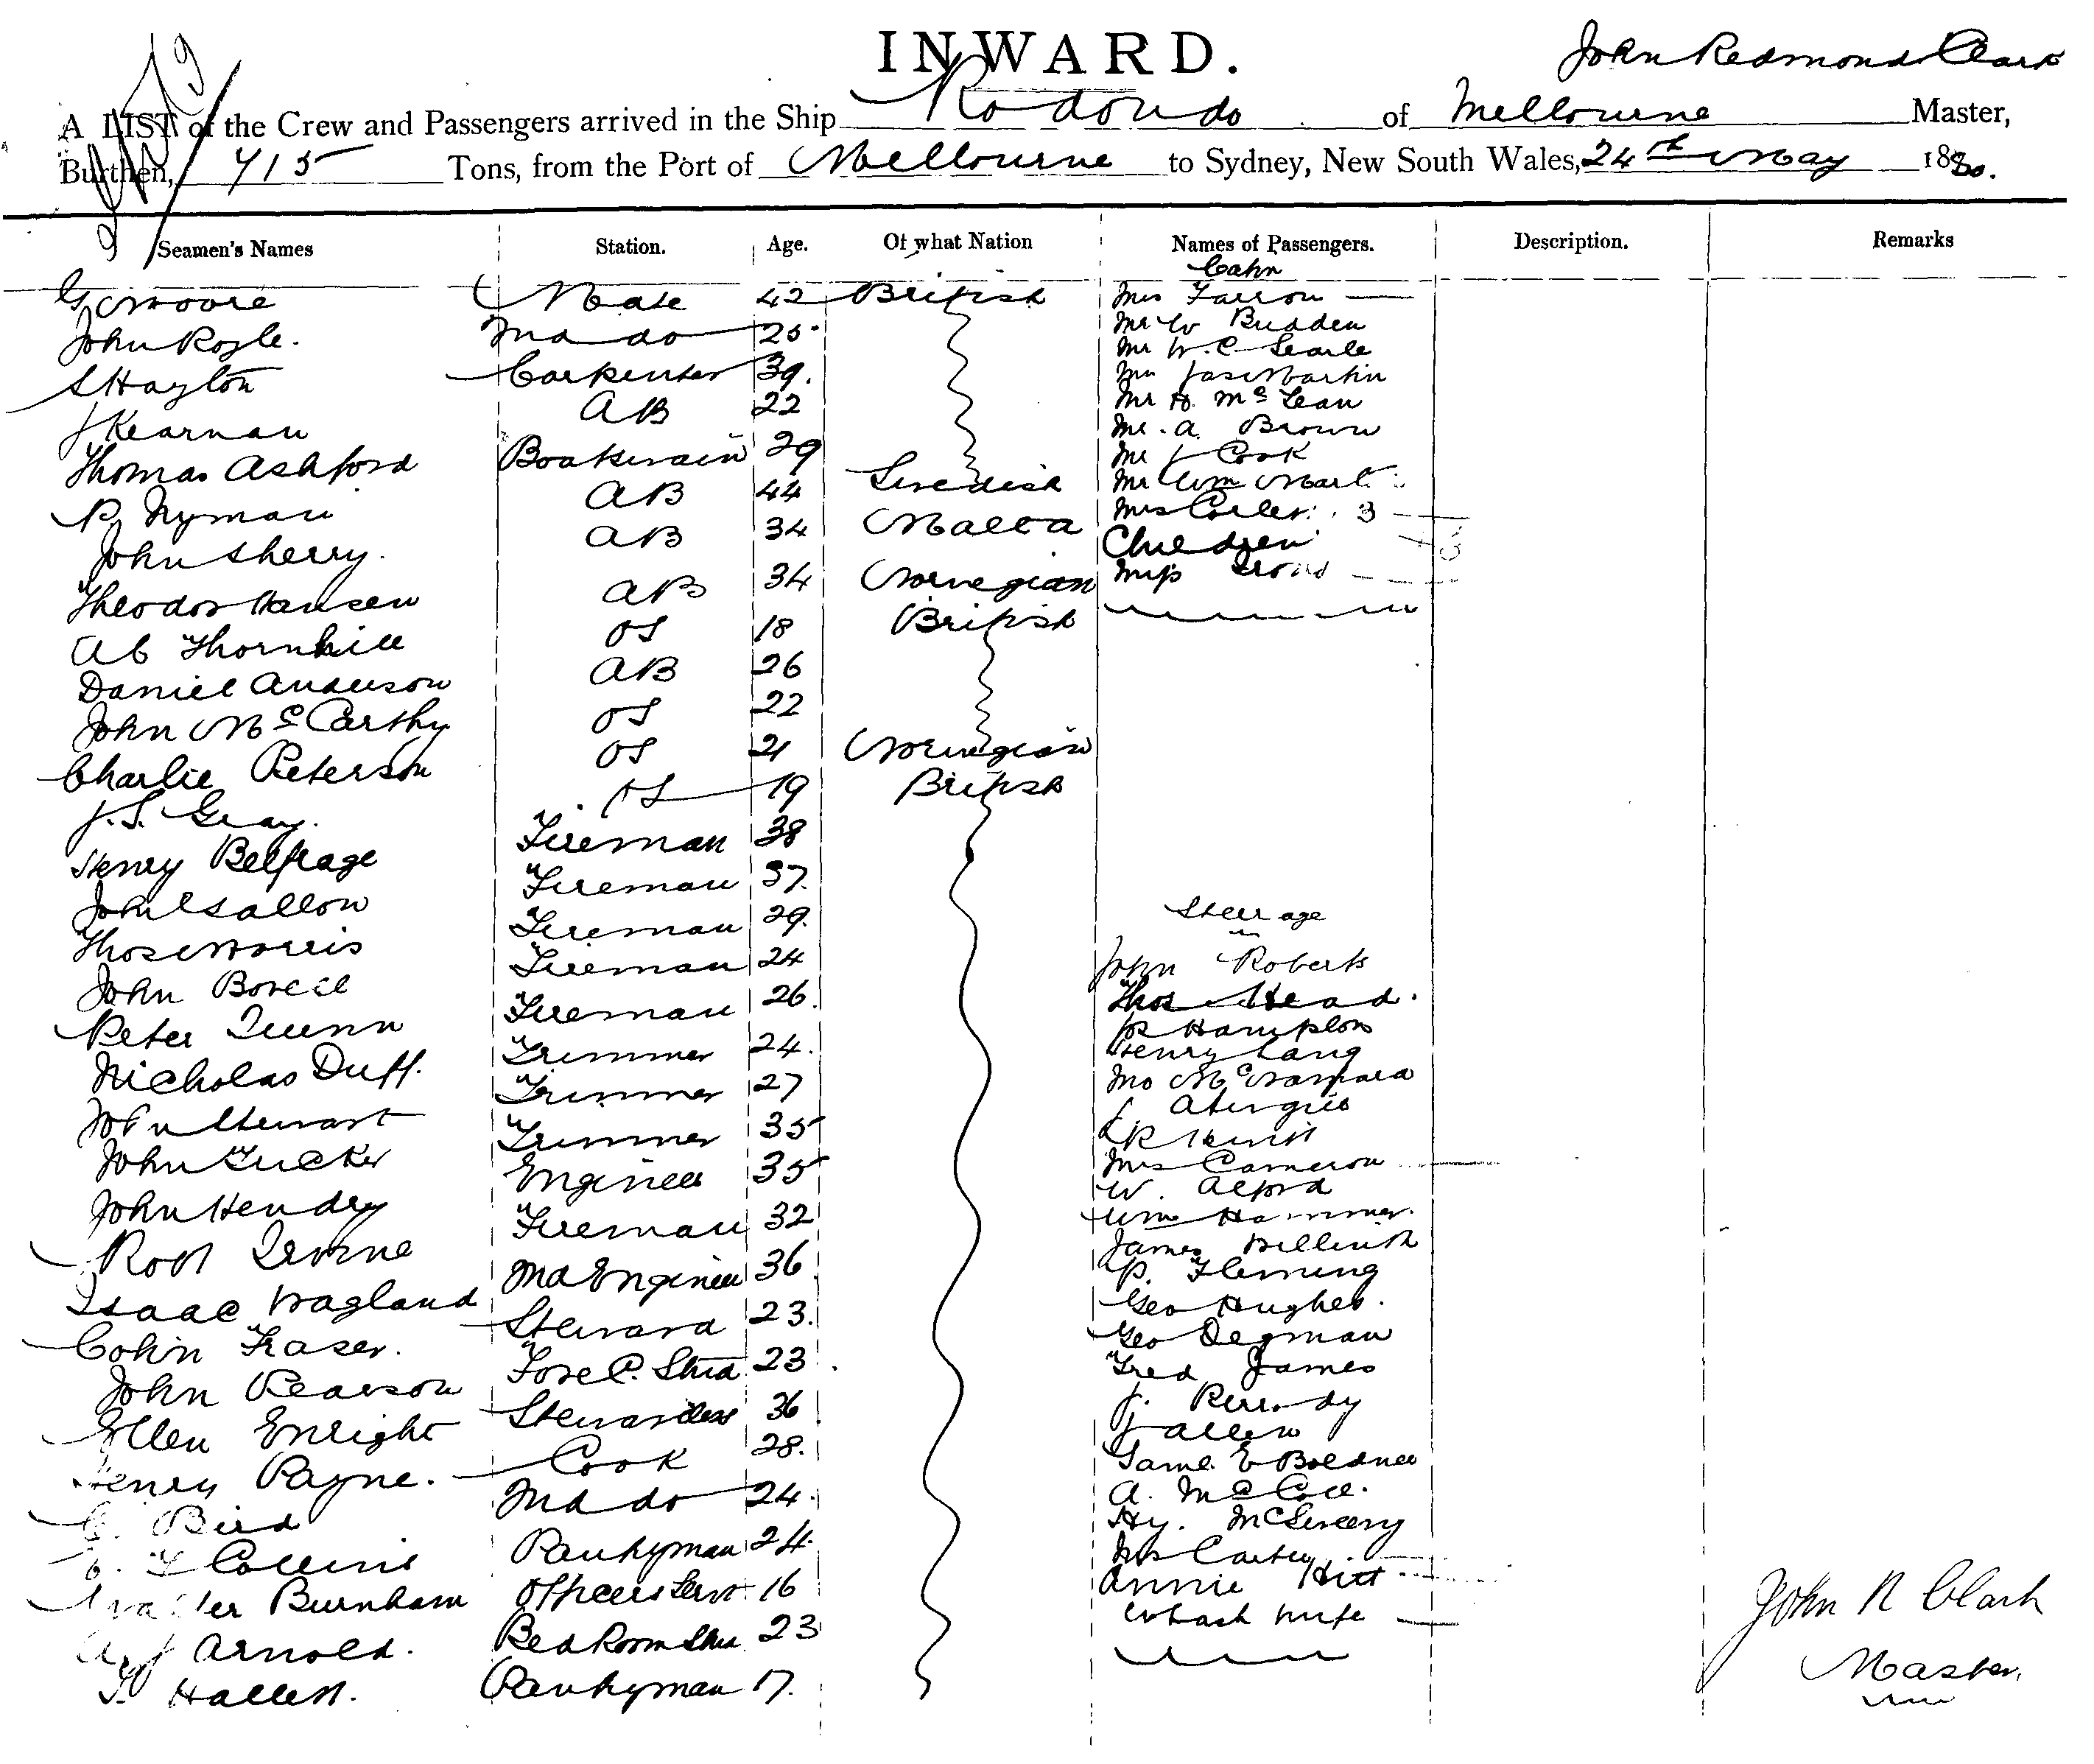 INWARD.
John Redmond Clark
A LIST of the Crew and Passengers arrived in the Ship Rodondo of Melbourne Master,
Burthen, 715 Tons, from the Port of Melbourne to Sydney, New South Wales, 24th May 1880.
Seamen's Names Station. Age. Of what Nation Names of Passengers. Description. Remarks
Cabin
G Moore Mate 42 British Mrs Farron
John Rogle. 2nd do 25. Mr W Budden
S Hayton Carpenter 39. Mr W. C Searle
J Kearnan AB 22 Mr Jas Martin
Thomas Ashford Boatswain 29 Mr H. McLean
P. Nyman AB 44 Swedish Mr. A Brown
John Sherry. AB 34 Malta Mr J Cook
Theodor Hansen AB 34 Norwegian Mr Wm
Ab Thornhill OS 18 British Mrs 3
Daniel Anderson AB 26 Children
John McCarthy OS 22 Miss
Charlie Peterson OS 21 Norwegian
J. S. Gray. OS 19 British
Henry Belfrage Fireman 38
John Fireman 37.
Thos Morris Fireman 29. Steerage
John Fireman 24 John Roberts
Peter Quinn Fireman 26. Thos Head.
Nicholas Duff. Trimmer 24. Hampton
John Stewart Trimmer 27 Henry Lang
John Tucker Trimmer 35 McNamara
John Hendry Engineer 35
Robt Irvine Fireman 32
Isaac Wagland 2nd Engineer 36 Mrs Cameron
Colin Fraser. Steward 23. W. Alford
John Pearson Fore C. Stwd 23. Wm Hammer
Ellen Enright Stewardess 36 James
Henry Payne. Cook 28. P. Fleming
Bird 2nd do 24. Geo Hughes.
Collins Pantryman 24. Geo Degman
Walter Burnham Officers Servt 16 Fred James
A J Arnold. Bed Room Stwd 23
Hallett. Pantryman 17.
J Allen
Saml E
A. McColl.
Hy. McSweeny
Mrs Carter
Annie Hitt
John R Clark
Master.